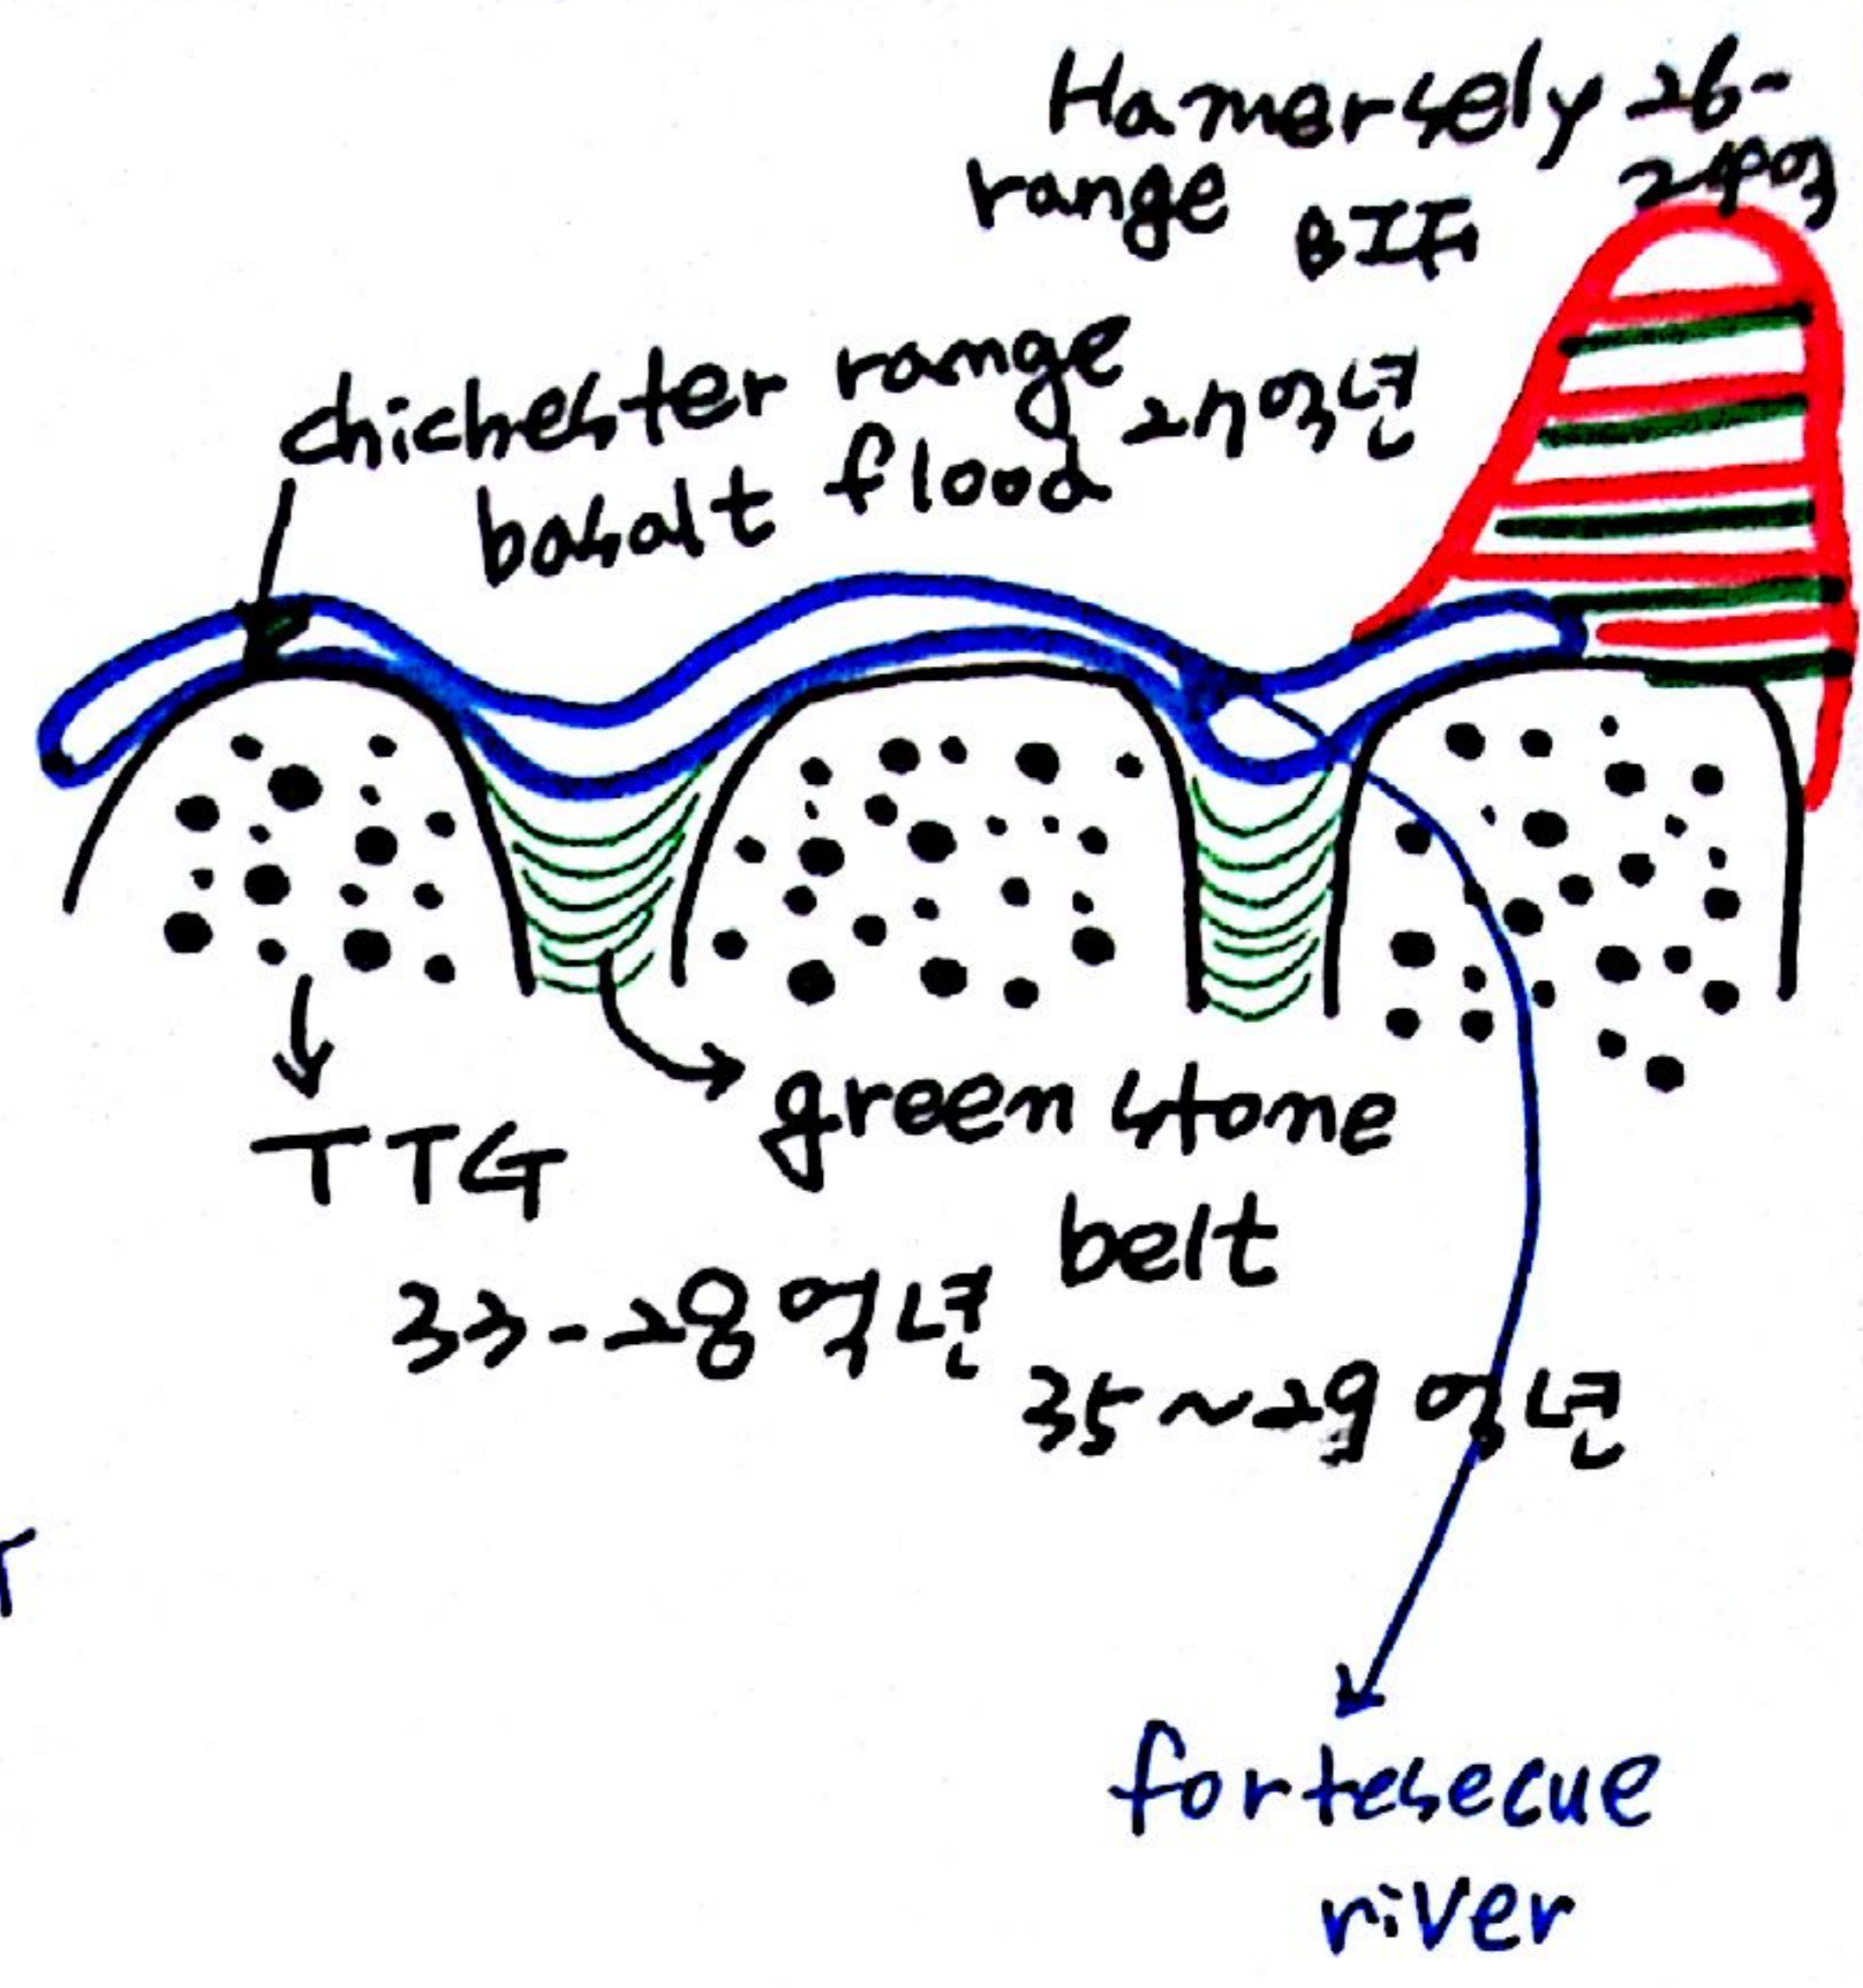 Hamersely 26-
range BIF 24억
chichester range
basalt flood 27억년
TTG
33-28억년
green stone
belt
35~29억년
fortesecue
river